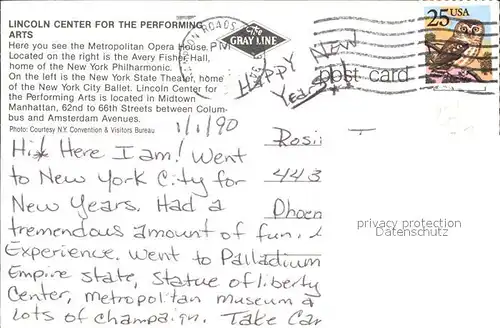 LINCOLN CENTER FOR THE PERFORMING
ARTS
Here you see the Metropolitan Opera House.
Located on the right is the Avery Fisher Hall,
home of the New York Philharmonic.
On the left is the New York State Theater, home
of the New York City Ballet. Lincoln Center for
the Performing Arts is located in Midtown
Manhattan, 62nd to 66th Streets between Colum-
bus and Amsterdam Avenues.
Photo: Courtesy N.Y. Convention & Visitors Bureau
The
GRAY LINE
PM
25 USA
post card
Happy New
Years!
1/1/90
Hi! Here I am! Went
to New York City for
New Years. Had a
tremendous amount of fun.
Experience. Went to Palladium
Empire state, Statue of liberty
Center, metropolitan museum &
Lots of champaign. Take Car
Rosii
443
Phoen
privacy protection
Datenschutz